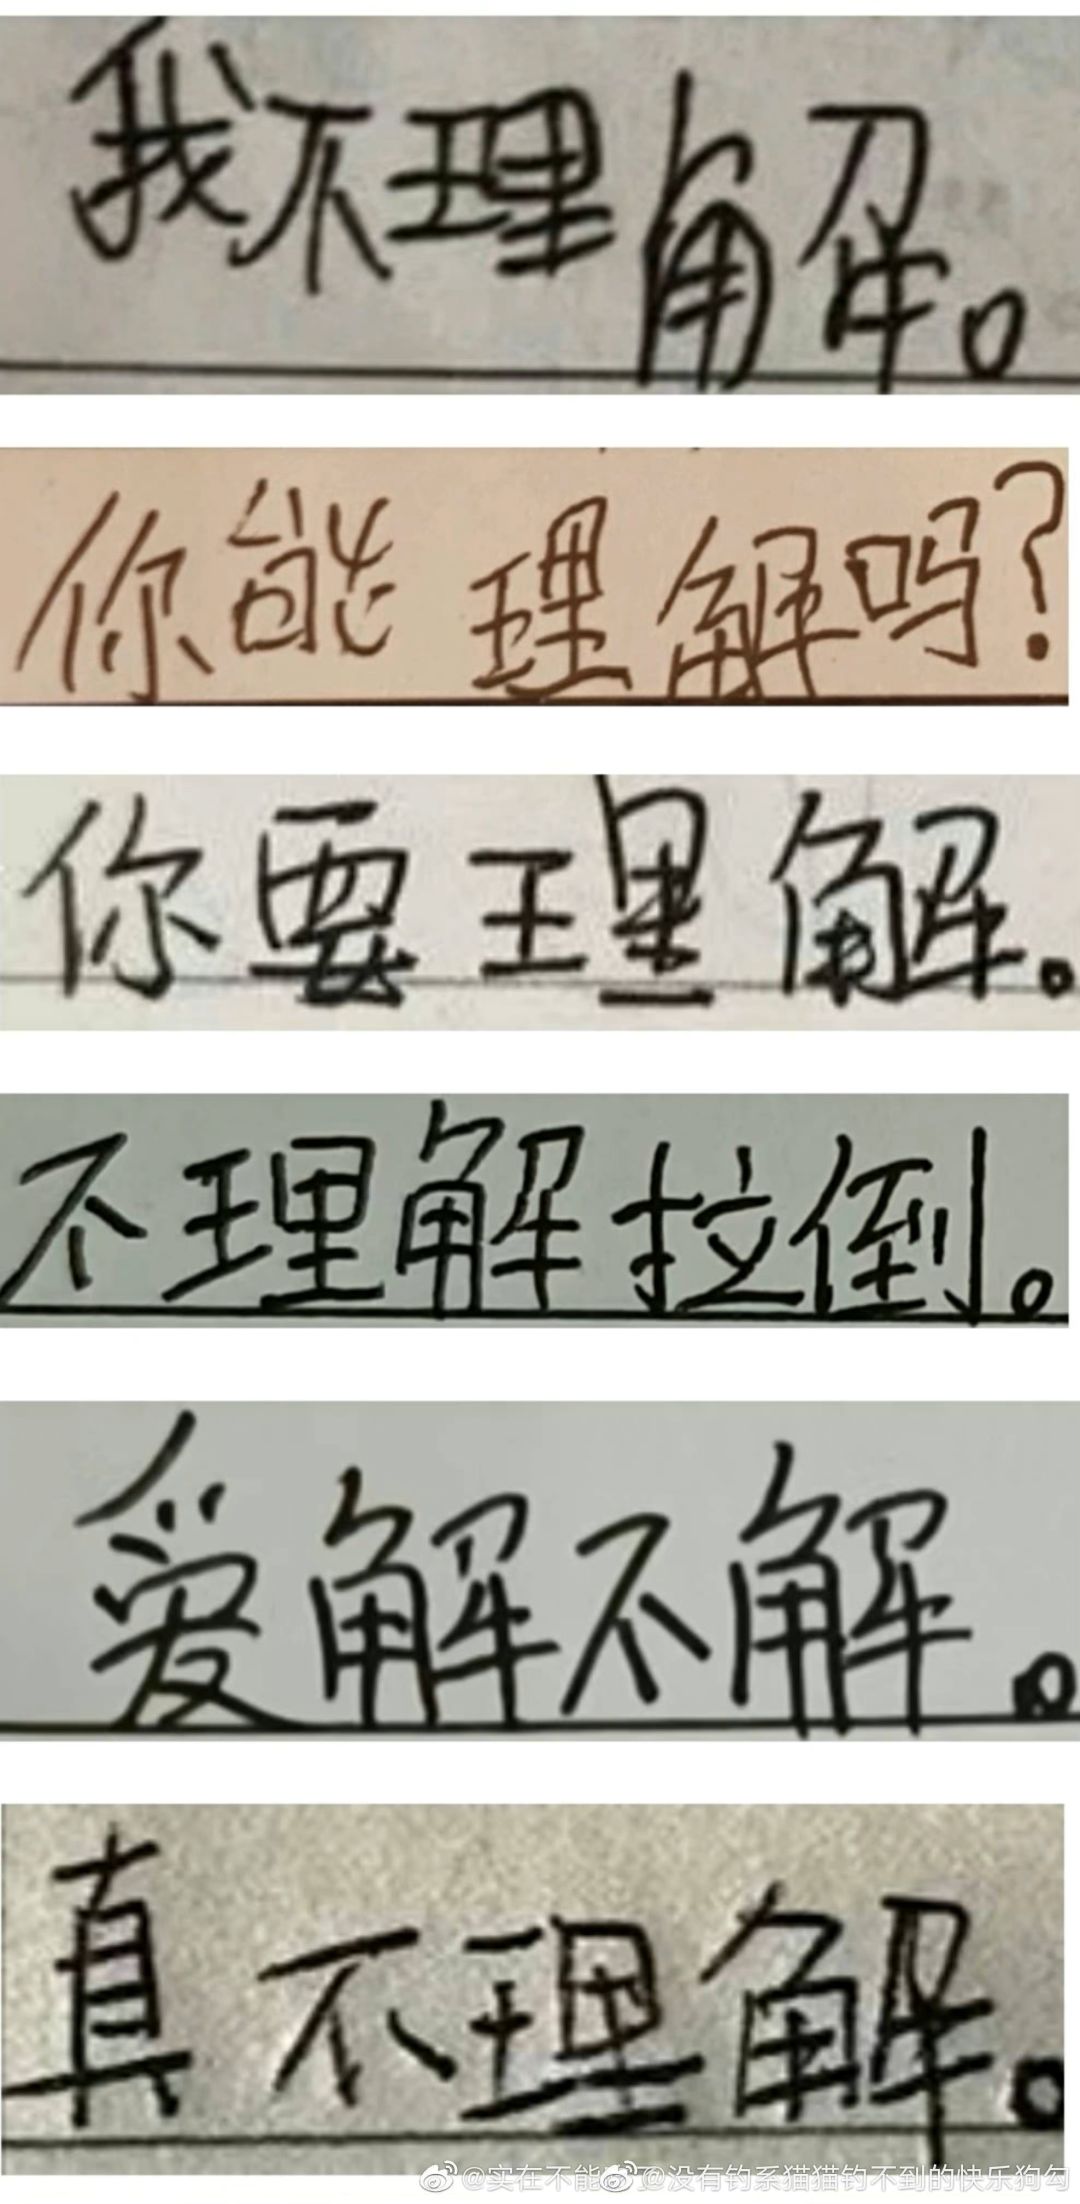 我不理解。
你能理解吗?
你要理解。
不理解拉倒。
爱解不解。
真不理解。
@实在不能 @没有钓系猫猫钓不到的快乐狗勾